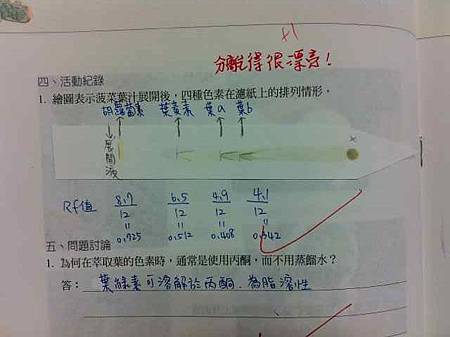 +1
分離得很漂亮！
四、活動紀錄
1. 繪圖表示菠菜葉汁展開後，四種色素在濾紙上的排列情形。
胡蘿蔔素 葉黃素 葉a 葉b
展開液 x
Rf值 8.7/12 6.5/12 4.9/12 4.1/12
= = = =
0.725 0.512 0.408 0.342
五、問題討論
1. 為何在萃取葉的色素時，通常是使用丙酮，而不用蒸餾水？
答：葉綠素可溶解於丙酮，為脂溶性